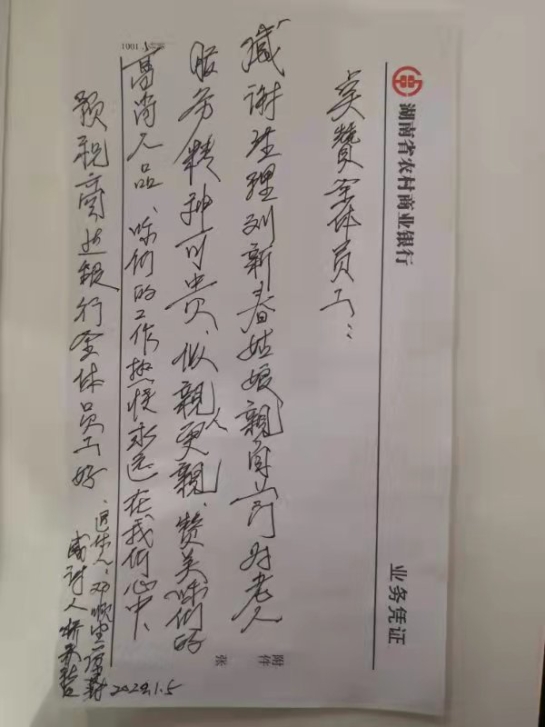 湖南省农村商业银行
业务凭证
奖赞全体员工:
附件 张
感谢经理刘新春姑娘亲自上门对老人
服务精神可贵、似亲人更亲、赞美你们的
高尚人品、你们的工作热忱永远在我们心中、
预祝银行全体员工好
退休人:邓顺
感谢人
2020.1.5